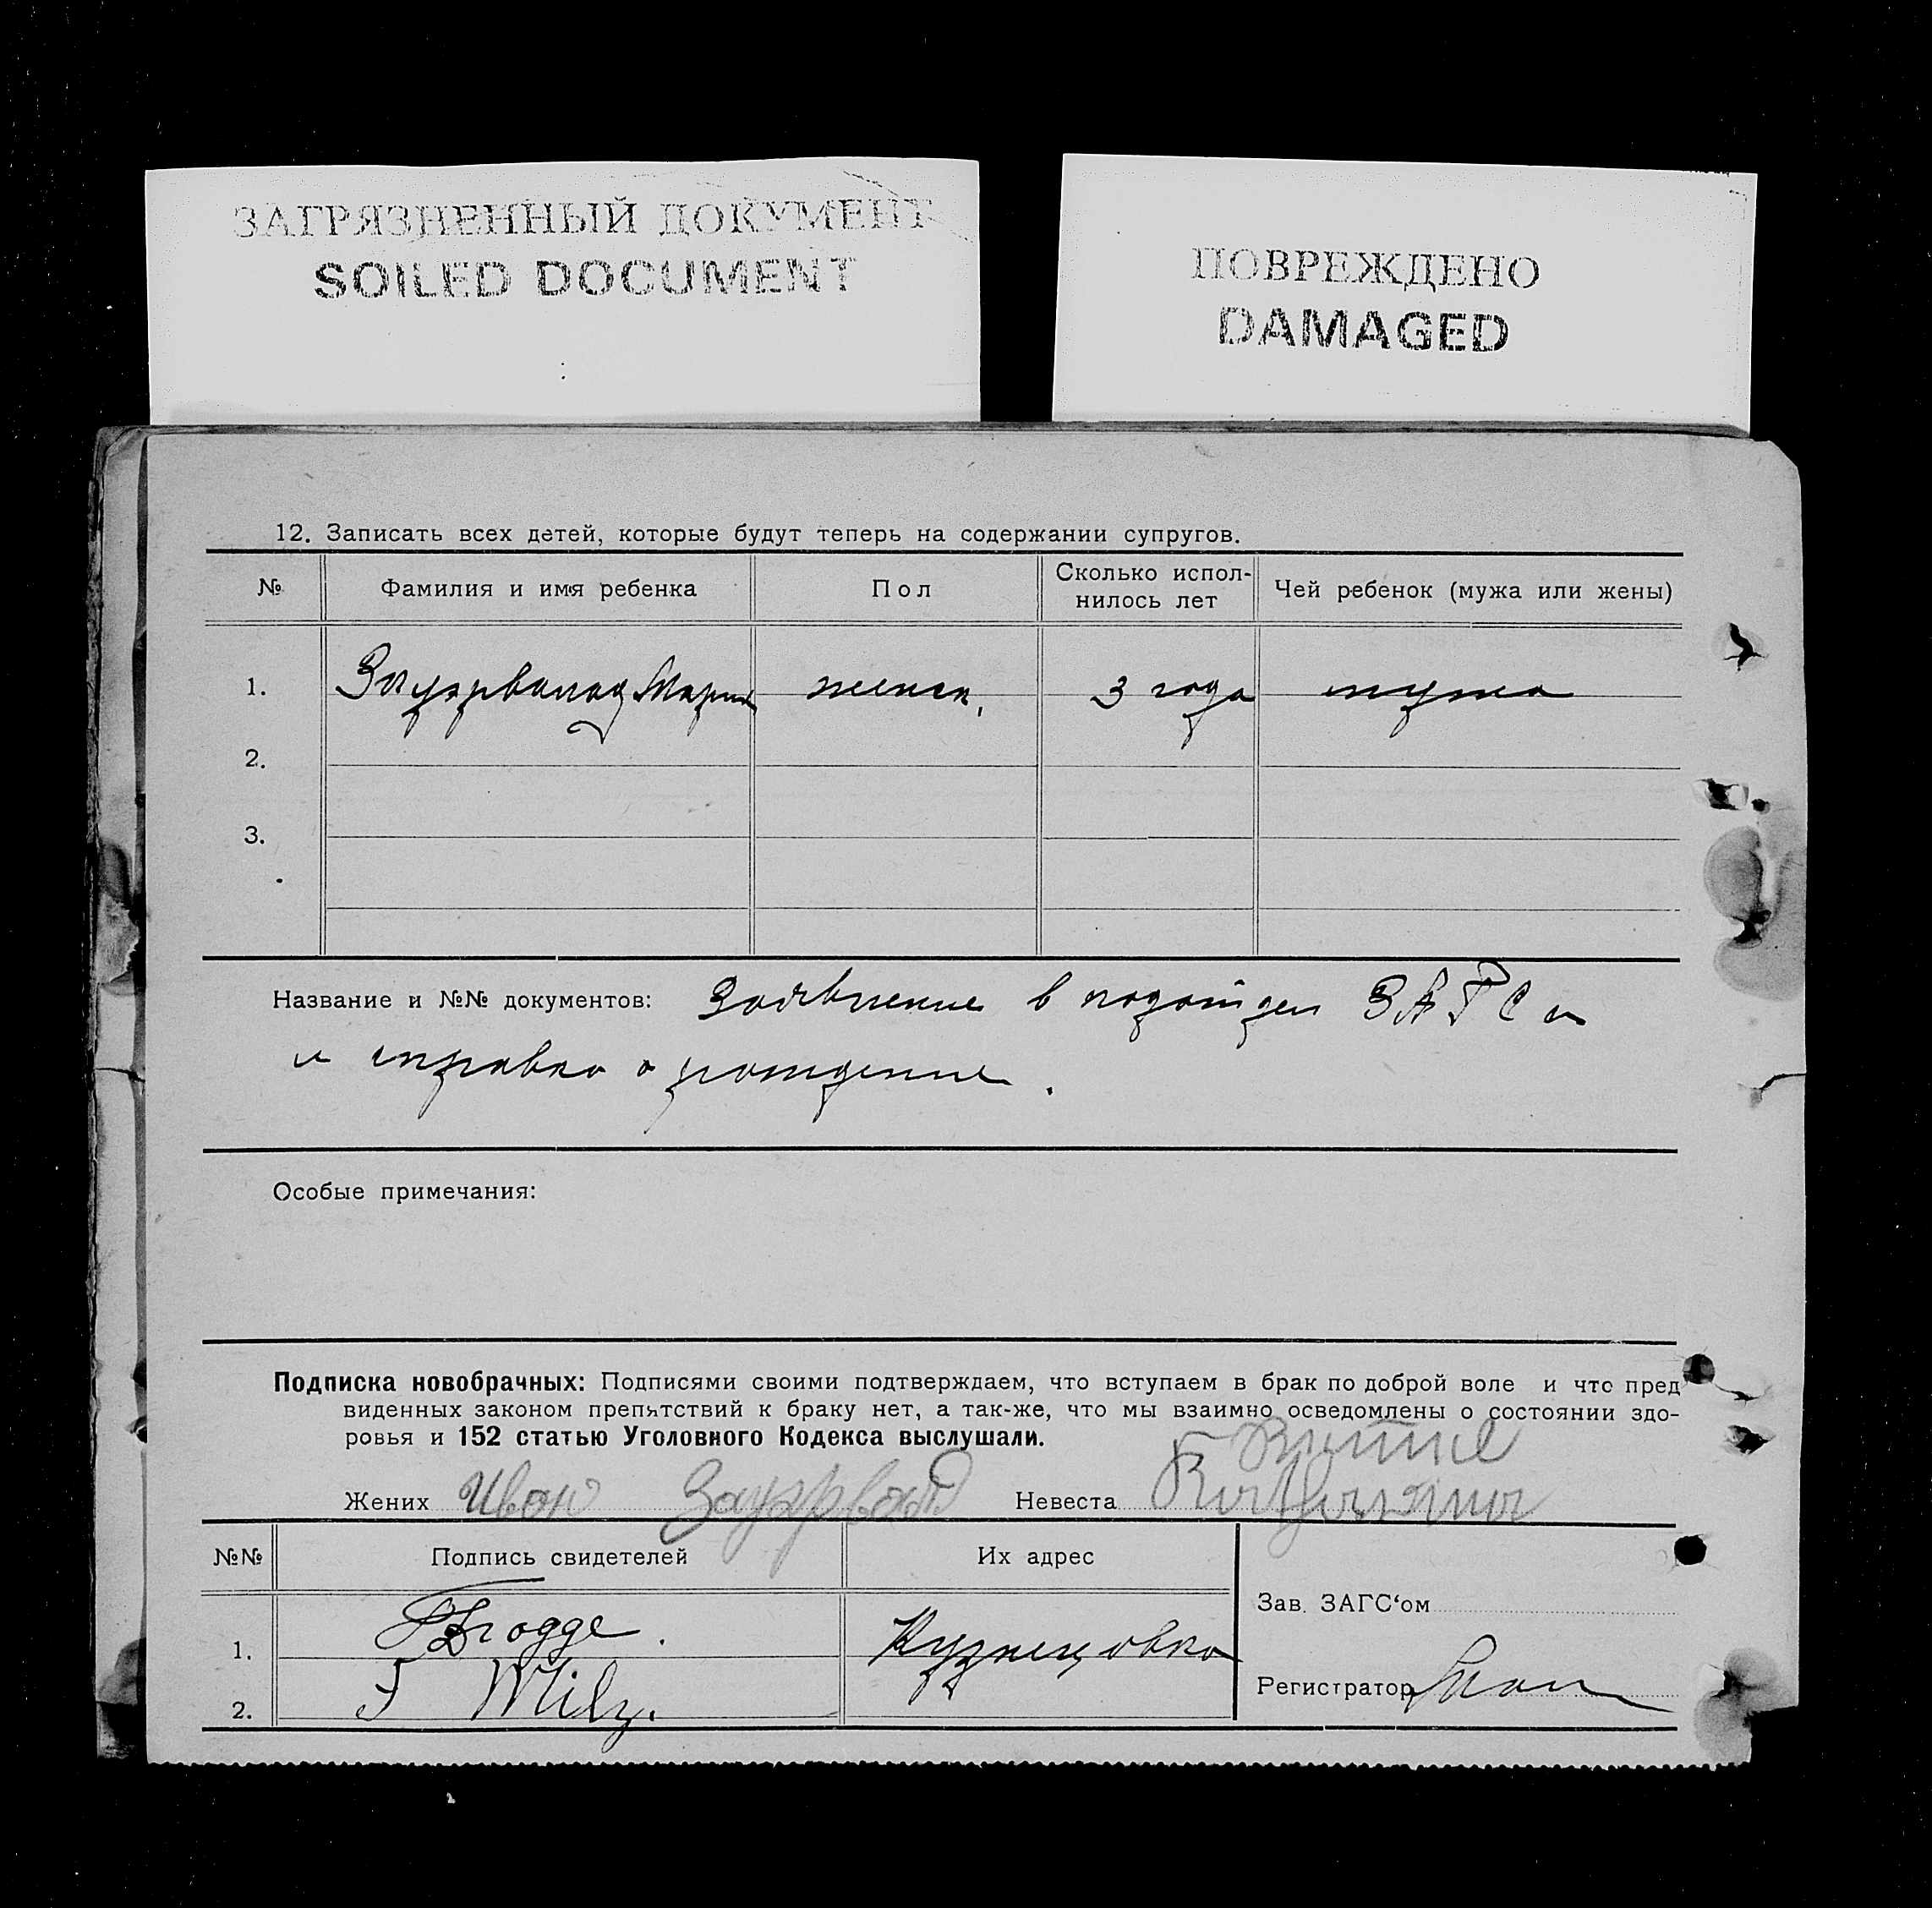 ЗАГРЯЗНЕННЫЙ ДОКУМЕНТ
SOILED DOCUMENT
ПОВРЕЖДЕНО
DAMAGED
12. Записать всех детей, которые будут теперь на содержании супругов.
№ Фамилия и имя ребенка Пол Сколько испол- Чей ребенок (мужа или жены)
нилось лет
1. Мария женск. 3 года мужа
2.
3.
Название и №№ документов: Заявление в ЗАГС
и справка о рождение.
Особые примечания:
Подписка новобрачных: Подписями своими подтверждаем, что вступаем в брак по доброй воле и что пред
виденных законом препятствий к браку нет, а так-же, что мы взаимно осведомлены о состоянии здо-
ровья и 152 статью Уголовного Кодекса выслушали.
Жених Иван Невеста
№№ Подпись свидетелей Их адрес
Зав. ЗАГС'ом
1. Кузнецовка
Регистратор
2. Milz.